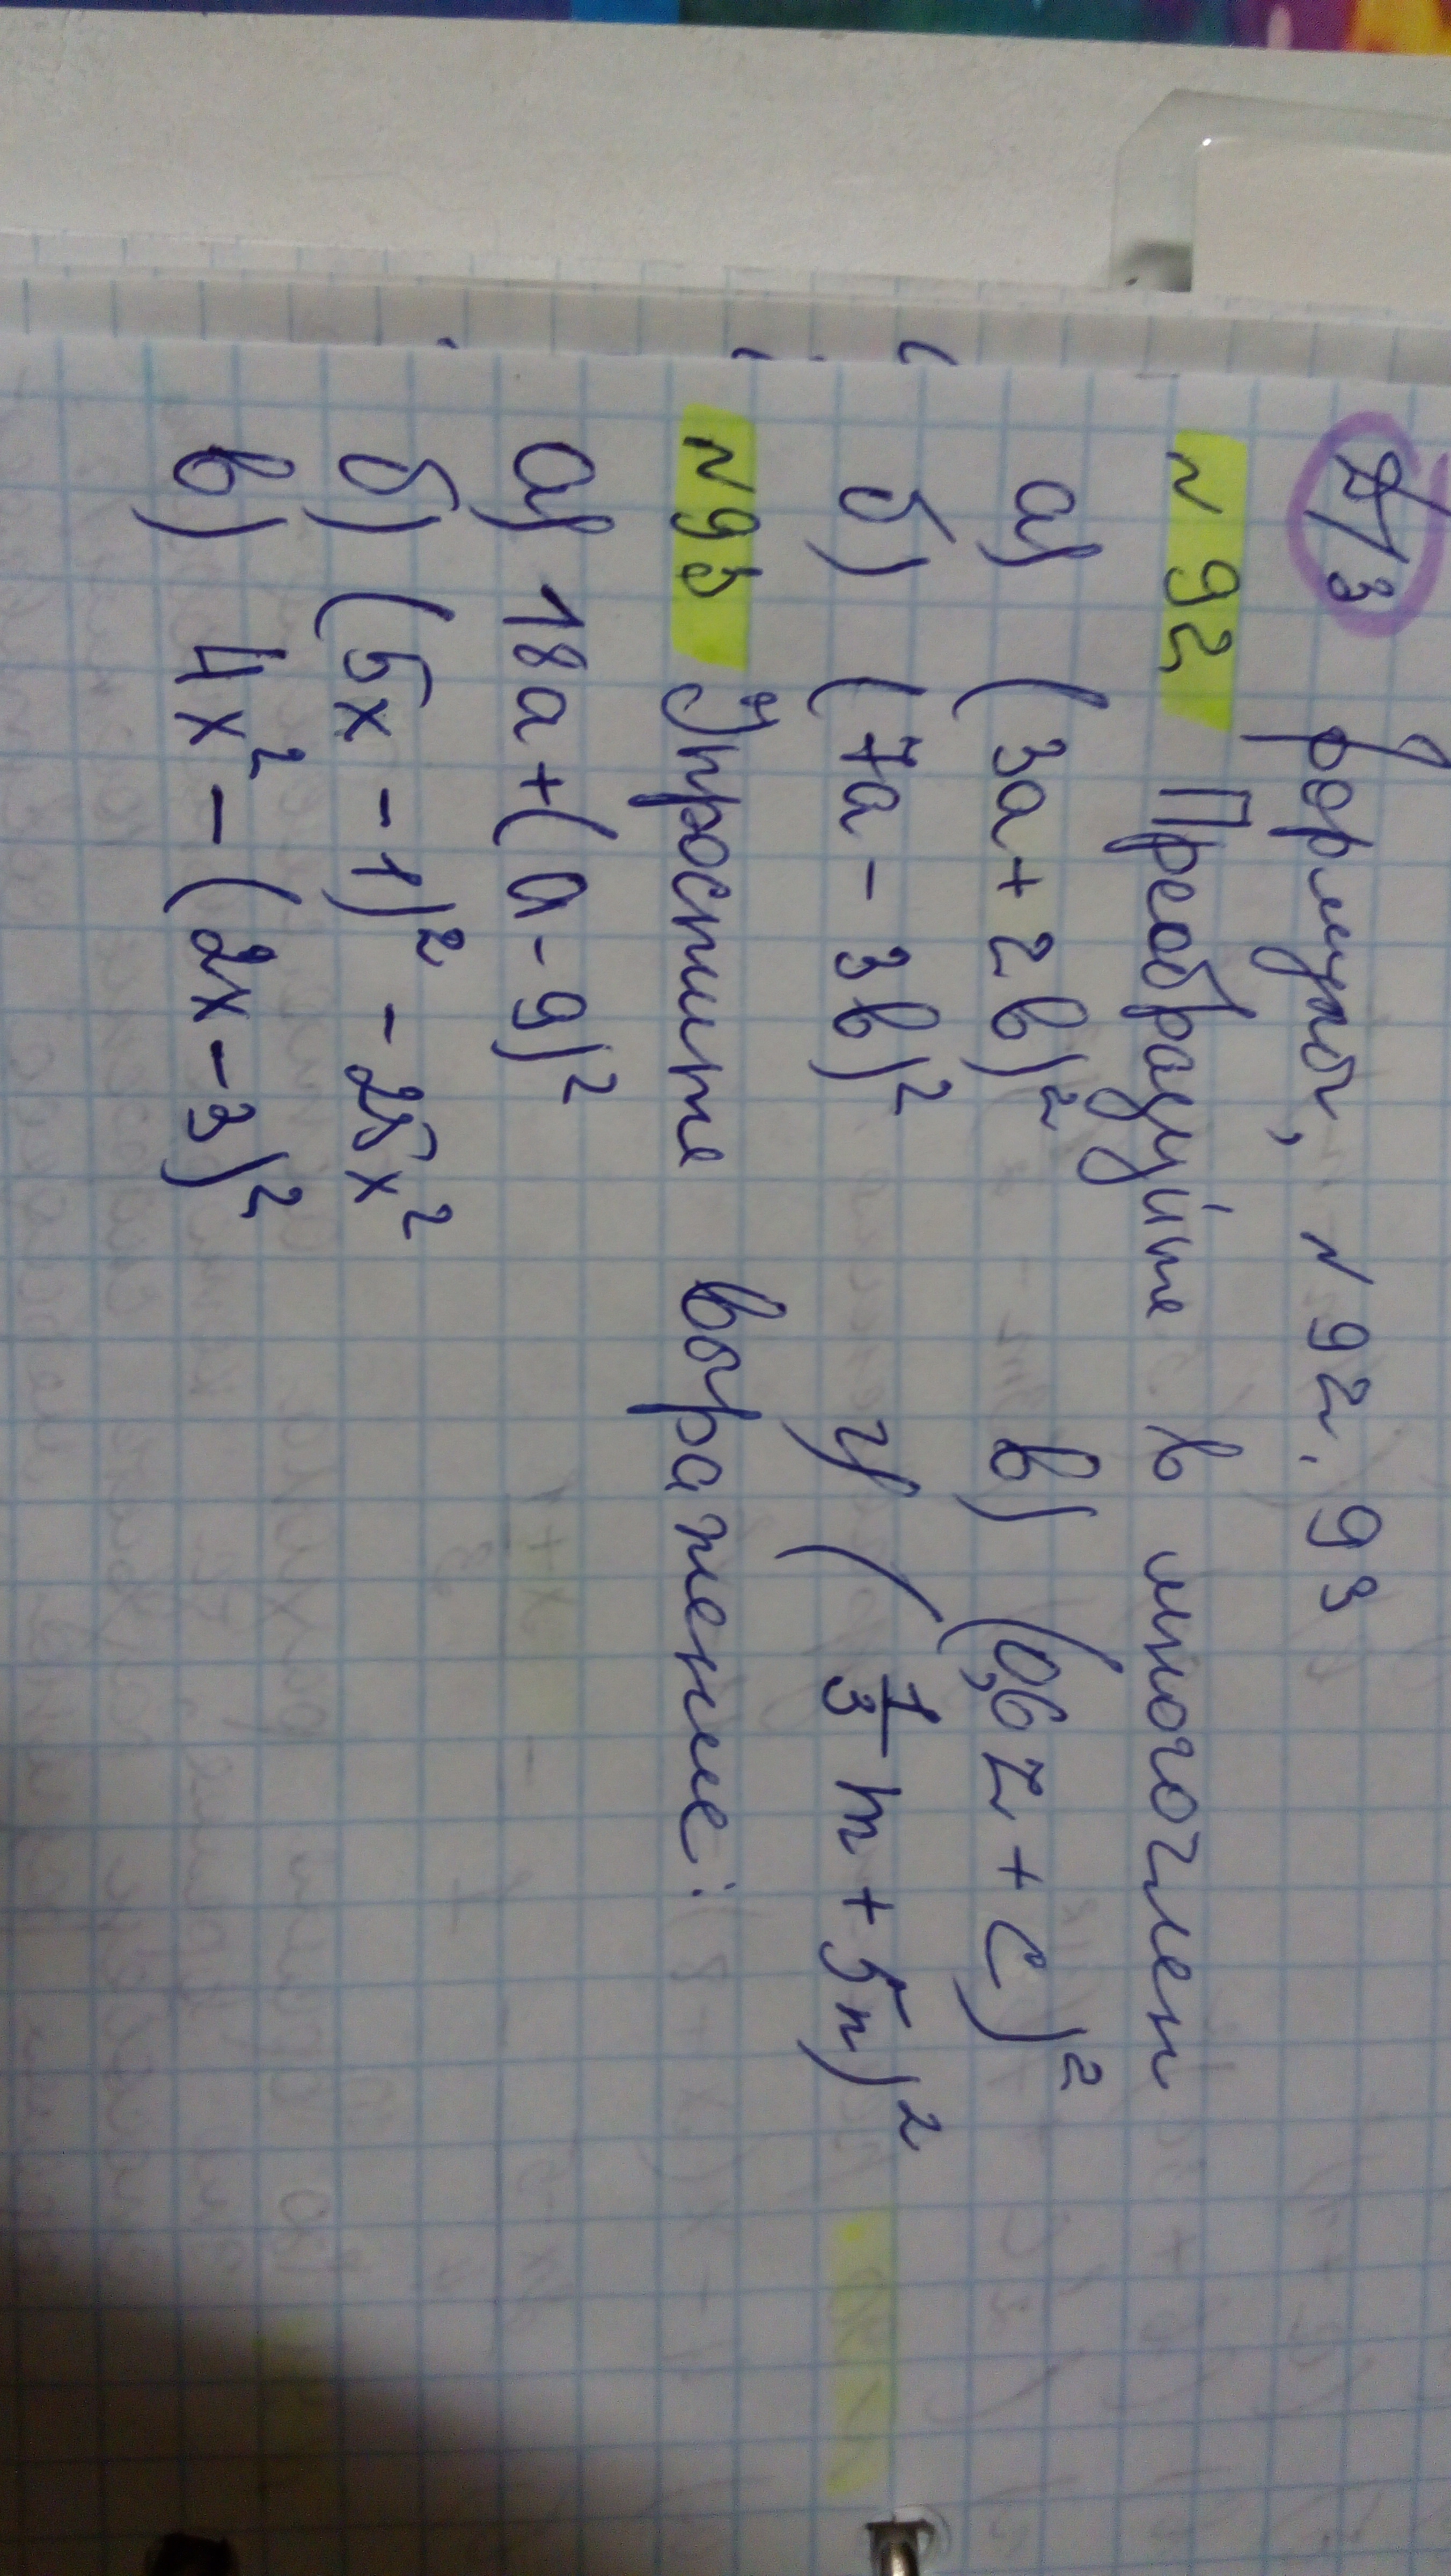 Д/З формулы, N 92, 93
N 92 Преобразуйте в многочлен
а) (3а + 2в)² в) (0,6z + c)²
б) (7а - 3в)² г) (1/3 m + 5n)²
N 93 Упростите выражение:
а) 18а + (а - 9)²
б) (5x - 1)² - 25x²
в) 4x² - (2x - 3)²